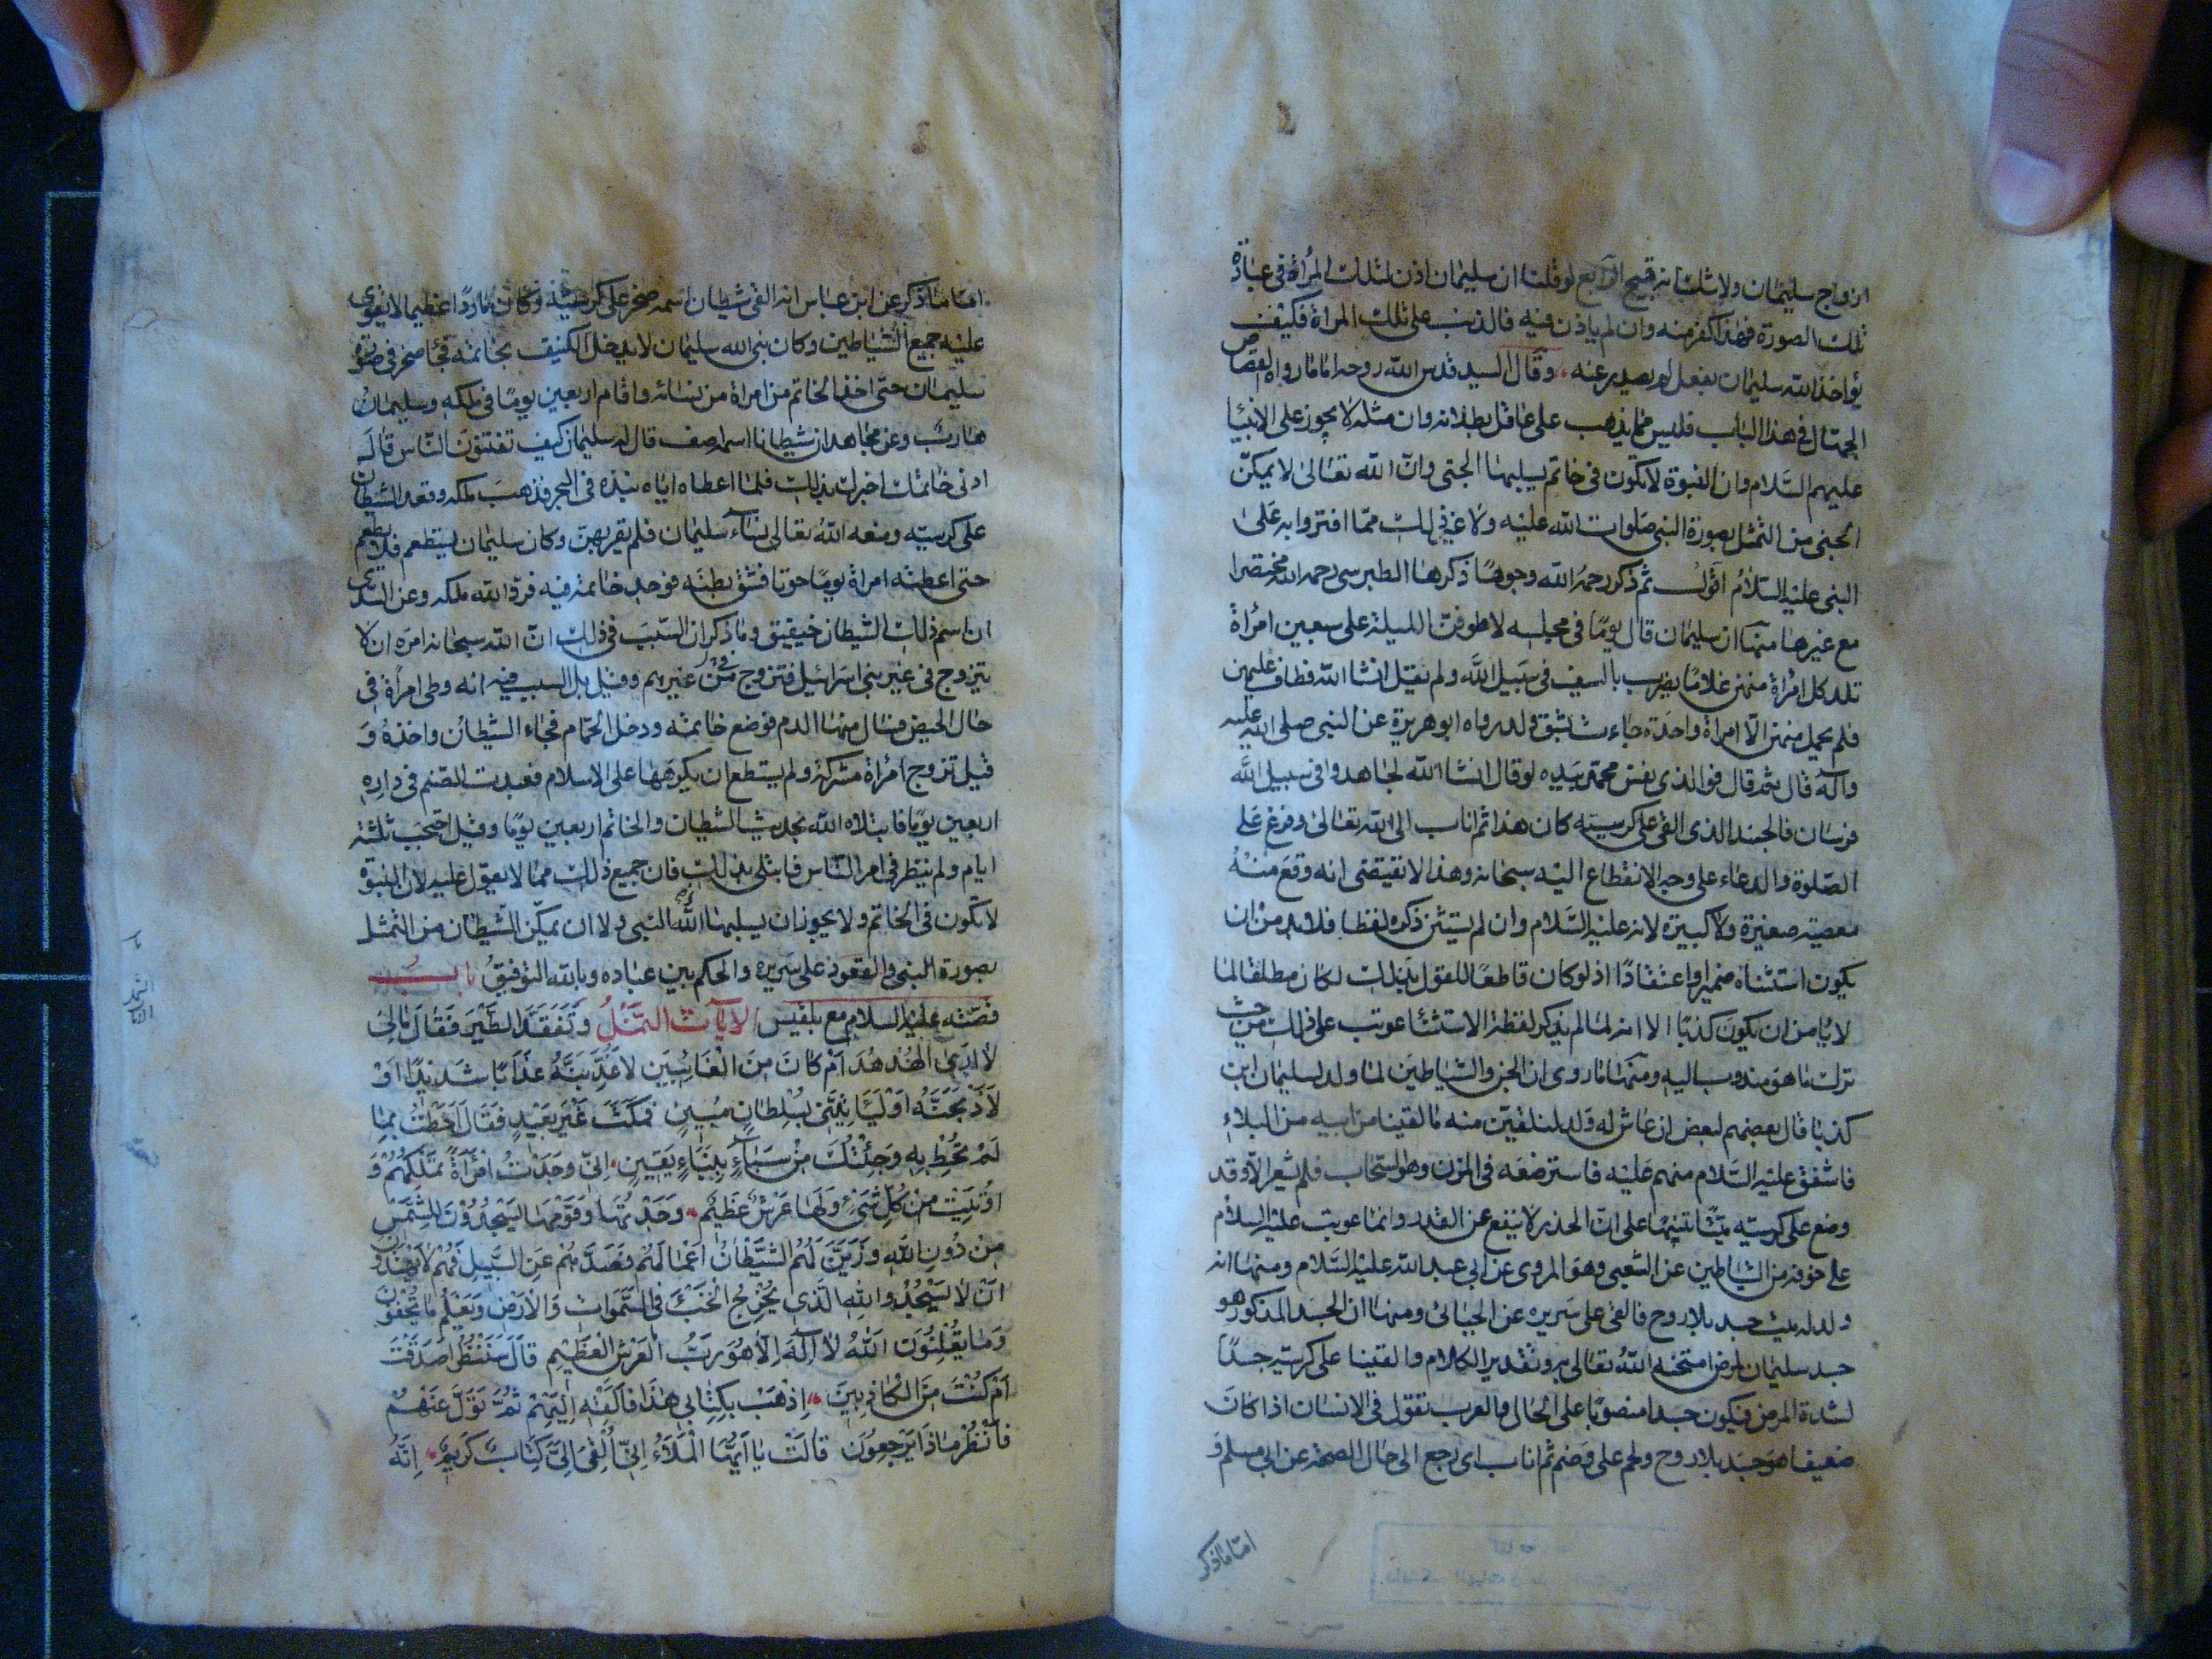 ازواج سليمان ولا شك انه قبيح الرابع لو قلنا ان سليمان اذن لتلك المرأة في عبادة
تلك الصورة فهذا كفر منه وان لم ياذن فيه فالذنب على تلك المراة فكيف
يؤاخذ الله سليمان بفعل لم يصدر عنه وقال السيد قدس الله روحه اما ما رواه القصاص
الجهال في هذا الباب فليس مما يذهب على عاقل بطلانه وان مثله لا يجوز على الانبيا
عليهم السلام وان النبوة لا تكون في خاتم يسلبها الجني وان الله تعالى لا يمكن
الجني من التمثل بصورة النبي صلوات الله عليه ولا غير ذلك مما افتروا به على
النبي عليه السلام اقول ثم ذكر رحمه الله وجوها ذكرها الطبرسي رحمه الله مختصرا
مع غيرها منها ان سليمان قال يوما في مجلسه لاطوفن الليلة على سبعين امرأة
تلد كل امرأة منهن غلاما يضرب بالسيف في سبيل الله ولم يقل انشا الله فطاف عليهن
فلم يحمل منهن الا امرأة واحدة جاءت بشق ولد رواه ابو هريرة عن النبي صلى الله عليه
وآله قال ثم قال فوالذي نفس محمد بيده لو قال انشا الله لجاهدوا في سبيل الله
فرسان فالجسد الذي القي على كرسيه كان هذا ثم اناب الى الله تعالى وفزع على
الصلوة والدعاء على وجه الانقطاع اليه سبحانه وهذا لا يقتضي انه وقع منه
معصية صغيرة ولا كبيرة لانه عليه السلام وان لم يستثن ذكره لفظا فلا بد من ان
يكون استثناه ضميرا واعتقادا اذ لو كان قاطعا للقول بذلك لكان مطلقا لما
لا يامن ان يكون كذبا الا انه لما لم يذكر لفظة الاستثنا عوتب على ذلك من حيث
ترك ما هو مندوب اليه ومنها ما روي ان الجن والشياطين لما ولد لسليمان ابن
كذبا قال بعضهم لبعض ان عاش له ولد لنلقين منه ما لقينا من ابيه من البلاء
فاشفق عليه السلام منهم عليه فاسترضعه في المزن وهو السحاب فلم يشعر الا وقد
وضع على كرسيه ميتا تنبيها على ان الحذر لا ينفع عن القدر وانما عوتب عليه السلام
على خوفه من الشياطين عن الشعبي وهو المروي عن ابي عبد الله عليه السلام ومنها انه
ولد له ميت جسد بلا روح فالقي على سريره عن الجبائي ومنها ان الجسد المذكور هو
جسد سليمان لمرض امتحنه الله تعالى به وتقدير الكلام والقينا على كرسيه جسدا
لشدة المرض فيكون جسدا منصوبا على الحال والعرب تقول في الانسان اذا كان
ضعيفا هو جسد بلا روح ولحم على وضم ثم اناب اي رجع الى حال الصحة عن ابي مسلم و
اما ما ذكر
اما ما ذكر عن ابن عباس انه القي شيطان اسمه صخر على كرسيه وكان ماردا عظيما لا يقوى
عليه جميع الشياطين وكان نبي الله سليمان لا يدخل الكنيف بخاتمه فجا صخر في صورة
سليمان حتى اخذ الخاتم من امراة من نسائه واقام اربعين يوما في ملكه وسليمان
هارب وعن مجاهد ان شيطانا اسمه اصف قال له سليمان كيف تفتنون الناس قال
ارني خاتمك اخبرك بذلك فلما اعطاه اياه نبذه في البحر فذهب ملكه وقعد الشيطان
على كرسيه ومنعه الله تعالى نساء سليمان فلم يقربهن وكان سليمان يستطعم فلا يطعم
حتى اعطته امرأة يوما حوتا فشق بطنه فوجد خاتمه فيه فرد الله ملكه وعن السدي
ان اسم ذلك الشيطان خيقيق وما ذكر ان السبب في ذلك ان الله سبحانه امره ان لا
يتزوج في غير بني اسرائيل فتزوج في من غيرهم وقيل بل السبب فيه انه وطى امرأة في
حال الحيض فسال منها الدم فوضع خاتمه ودخل الحمام فجاء الشيطان واخذه و
قيل تزوج امرأة مشركة ولم يستطع ان يكرهها على الاسلام فعبدت الصنم في داره
اربعين يوما فابتلاه الله بحديث الشيطان والخاتم اربعين يوما وقيل احتجب ثلثة
ايام ولم ينظر في امر الناس فابتلي بذلك فان جميع ذلك مما لا يعول عليه لان النبوة
لا تكون في الخاتم ولا يجوز ان يسلبها الله النبي ولا ان يمكن الشيطان من التمثل
بصورة النبي والقعود على سريره والحكم بين عباده وبالله التوفيق باب
قصته عليه السلام مع بلقيس الآيات النمل وَتَفَقَّدَ الطَّيْرَ فَقَالَ مَالِيَ
لَا اَرَى الْهُدْهُدَ اَمْ كَانَ مِنَ الْغَائِبِينَ لَاُعَذِّبَنَّهُ عَذَابًا شَدِيدًا اَوْ
لَاَذْبَحَنَّهُ اَوْ لَيَأْتِيَنِّي بِسُلْطَانٍ مُبِينٍ فَمَكَثَ غَيْرَ بَعِيدٍ فَقَالَ اَحَطْتُ بِمَا
لَمْ تُحِطْ بِهِ وَجِئْتُكَ مِنْ سَبَاءٍ بِنَبَاءٍ يَقِينٍ اِنِّي وَجَدْتُ امْرَأَةً تَمْلِكُهُمْ وَ
اُوتِيَتْ مِنْ كُلِّ شَيْءٍ وَلَهَا عَرْشٌ عَظِيمٌ وَجَدْتُهَا وَقَوْمَهَا يَسْجُدُونَ لِلشَّمْسِ
مِنْ دُونِ اللهِ وَزَيَّنَ لَهُمُ الشَّيْطَانُ اَعْمَالَهُمْ فَصَدَّهُمْ عَنِ السَّبِيلِ فَهُمْ لَا يَهْتَدُونَ
اَنْ لَا يَسْجُدُوا لِلهِ الَّذِي يُخْرِجُ الْخَبْءَ فِي السَّمَوَاتِ وَالْاَرْضِ وَيَعْلَمُ مَا تُخْفُونَ
وَمَا تُعْلِنُونَ اللهُ لَا اِلَهَ اِلَّا هُوَ رَبُّ الْعَرْشِ الْعَظِيمِ قَالَ سَنَنْظُرُ اَصَدَقْتَ
اَمْ كُنْتَ مِنَ الْكَاذِبِينَ اِذْهَبْ بِكِتَابِي هَذَا فَاَلْقِهْ اِلَيْهِمْ ثُمَّ تَوَلَّ عَنْهُمْ
فَانْظُرْ مَاذَا يَرْجِعُونَ قَالَتْ يَا اَيُّهَا الْمَلَأُ اِنِّي اُلْقِيَ اِلَيَّ كِتَابٌ كَرِيمٌ اِنَّهُ